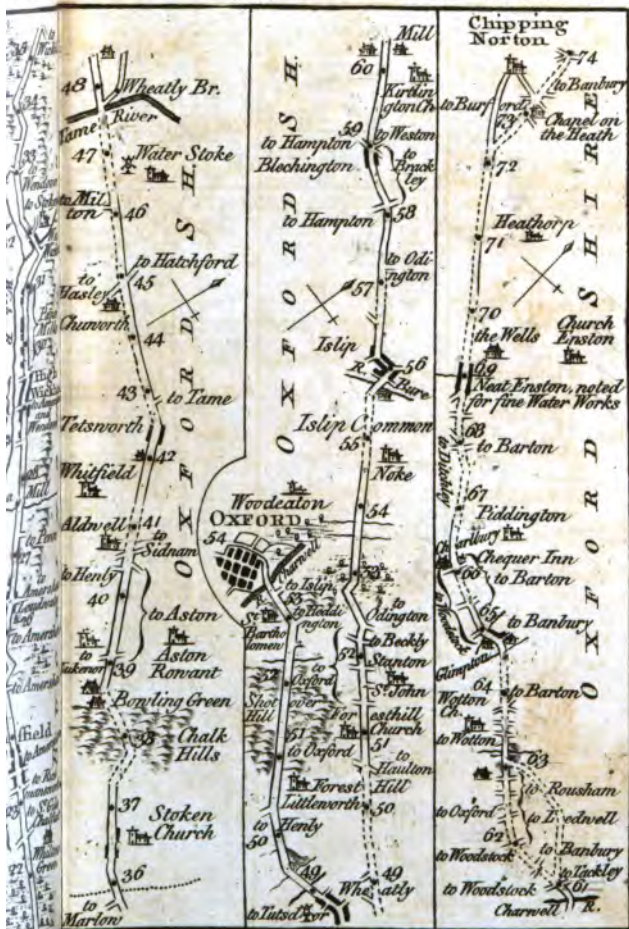 48
Wheatly Br.
Tame River
47
Water Stoke
to Mil
ton
46
to Hatchford
45
to
Hasley
44
43
to Tame
Tetsworth
42
Whitfield
Aldwell
41
to
Sidnam
to Henly
40
to Aston
to
39
Aston
Rowant
Bowling Green
38
Chalk
Hills
37
Stoken
Church
36
to
Marlow
OXFORD SH.
Mill
60
Kirtlin
gton Ch.
59
to Weston
to Hampton
Blechington
to
Brack
ley
to Hampton
58
to Odi
ngton
57
Islip
56
R.
Islip Common
55
Noke
54
Woodeaton
OXFORD
54
Charwell
R.
53
to Islip
53
to Heddi
ngton
St
Bartho
lomew
to
Odington
to Beckly
52
Stanton
St John
52
to
Oxford
Shot
over
Hill
For
esthill
Church
51
51
to Oxford
to
Haulton
Forest
Hill
Littleworth
50
to
50
Henly
49
49
Wheatly
OXFORD SH.
Chipping
Norton
74
to Banbury
to Burford
73
Chapel on
the Heath
72
Heathorp
71
70
the Wells
Church
Enston
69
Neat Enston, noted
for fine Water Works
68
to Barton
to Ditchley
67
Piddington
Chequer Inn
66
to Barton
to Woodstock
65
to Banbury
Glimpton
64
to Barton
Wotton
Ch.
to Wotton
63
to Rousham
to Oxford
62
to Woodstock
to Banbury
to Tackley
to Woodstock
61
Charwell R.
OXFORD SHIRE